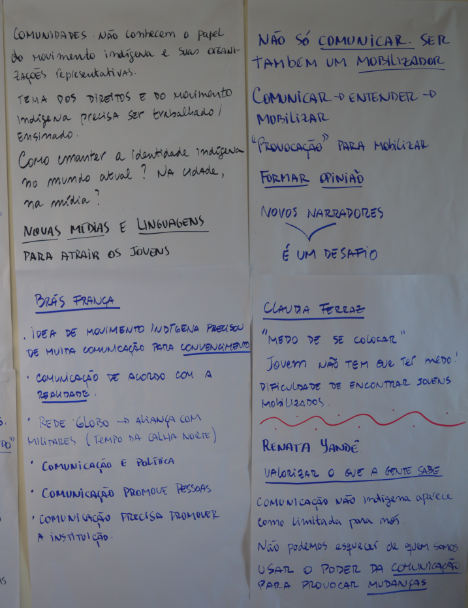 COMUNIDADES NÃO CONHECEM O PAPEL
do movimento indígena e suas ORGANI-
ZAÇÕES representativas.
TEMA DOS DIREITOS E DO MOVIMENTO
Indígena precisa ser trabalhado/
Ensinado.
Como manter a identidade indígena
no mundo atual? NA CIDADE,
na mídia?
NOVAS MÍDIAS E LINGUAGENS
PARA ATRAIR OS JOVENS
NÃO SÓ COMUNICAR. SER
TAMBÉM UM MOBILIZADOR
COMUNICAR → ENTENDER →
MOBILIZAR
"PROVOCAÇÃO" PARA MOBILIZAR
FORMAR OPINIÃO
NOVOS NARRADORES
É UM DESAFIO
BRÁS FRANÇA
• IDEIA DE MOVIMENTO INDÍGENA PRECISOU
DE MUITA COMUNICAÇÃO PARA CONVENCIMENTO
• COMUNICAÇÃO DE ACORDO COM A
REALIDADE.
• REDE GLOBO → ALIANÇA COM
MILITARES (TEMPO DA CALHA NORTE)
• COMUNICAÇÃO E POLÍTICA
• COMUNICAÇÃO PROMOVE PESSOAS
• COMUNICAÇÃO PRECISA PROMOVER
A INSTITUIÇÃO.
CLAUDIA FERRAZ
"MEDO DE SE COLOCAR"
Jovem NÃO TEM QUE TER MEDO!
DIFICULDADE DE ENCONTRAR JOVENS
MOBILIZADOS.
RENATA YANDÊ
VALORIZAR O QUE A GENTE SABE
COMUNICAÇÃO NÃO INDÍGENA APARECE
como limitada para nós
Não podemos esquecer de quem somos
USAR O PODER DA COMUNICAÇÃO
PARA PROVOCAR MUDANÇAS